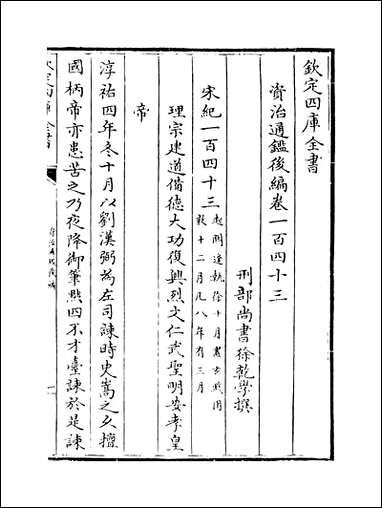 欽定四庫全書
資治通鑑後編卷一百四十三
刑部尚書徐乾學撰
宋紀一百四十三
起閼逢執徐十月盡玄黓困
敦十二月凡八年有三月
理宗建道備德大功復興烈文仁武聖明安孝皇
帝
淳祐四年冬十月以劉漢弼為左司諫時史嵩之久擅
國柄帝亦患苦之乃夜降御筆黜四不才臺諫於是諫